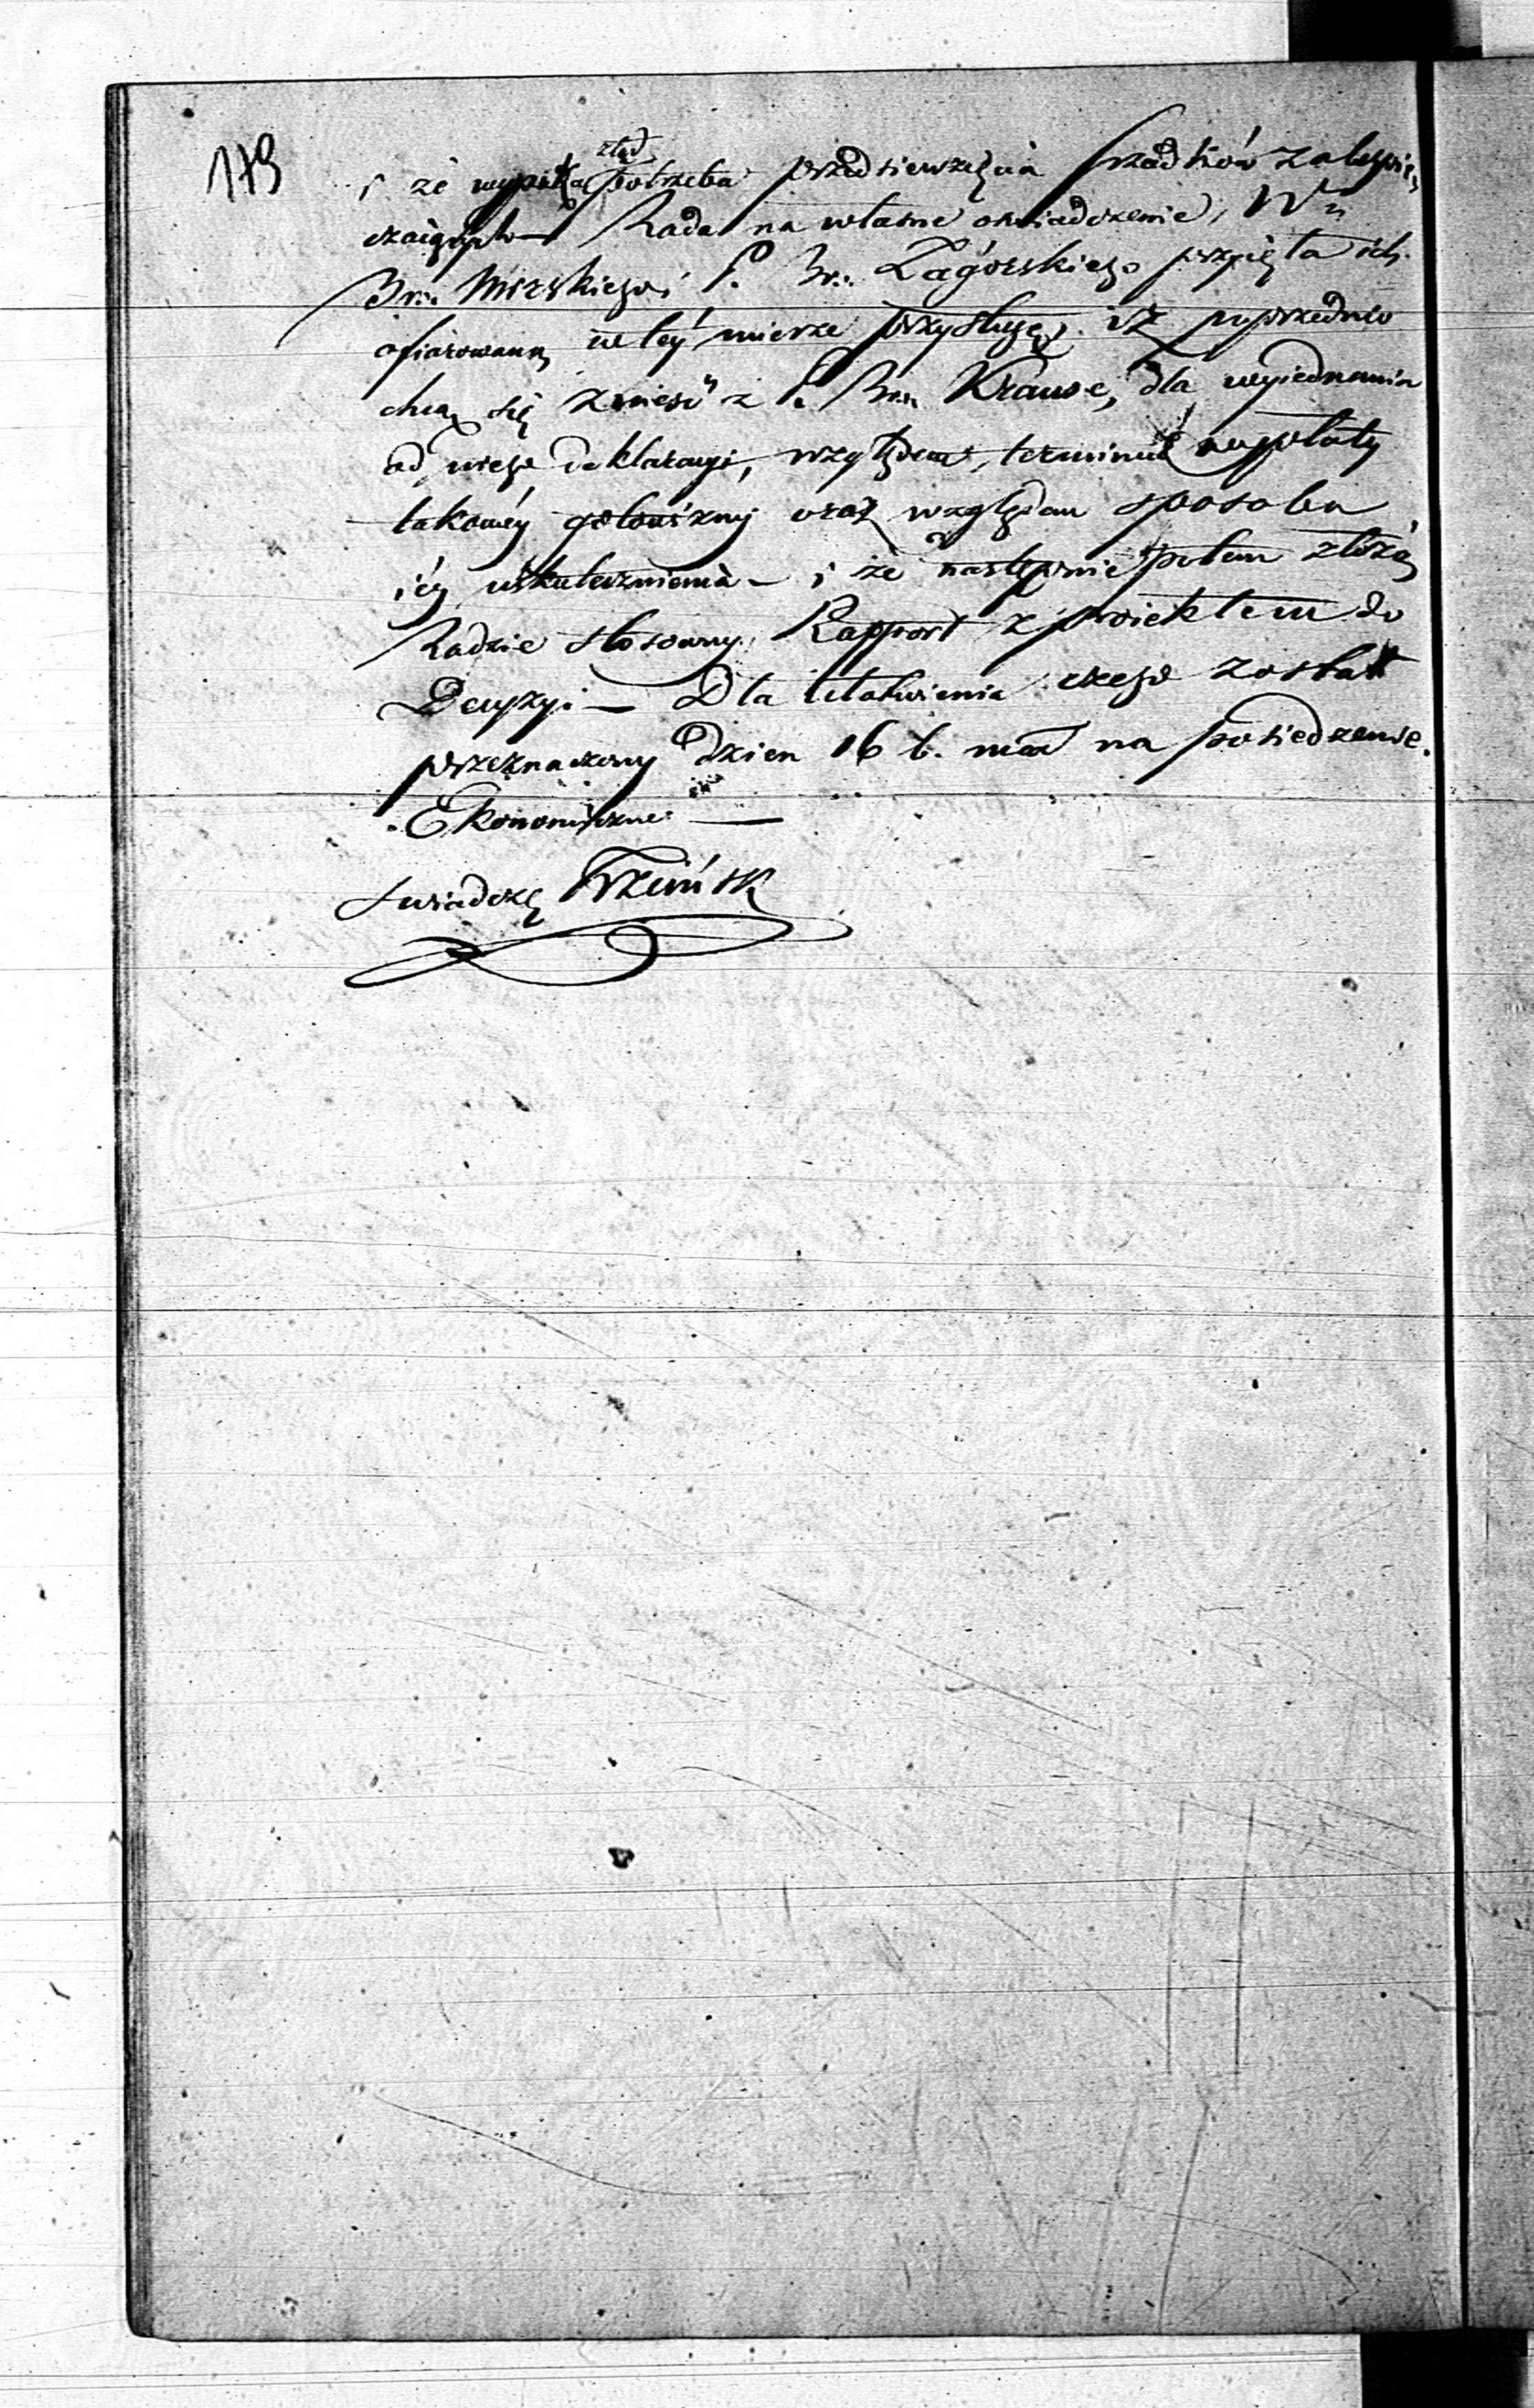 173
i że wypada ztąd potrzeba przedsięwzięcia srzodków zabezpie-
czaiących — Rada na własne oświadczenie, W
Br∴ Mirskiego, i P. Br∴ Zagórskiego przyięła ich
ofiarowaną w tey mierze przysługę, iż poprzednio
chcą się znieść z P. Br∴ Krause, dla wyiednania
od niego deklaracyi, względem, terminu wypłaty
takowéy gotowizny oraz względem sposobu
iéy uskutecznienia — i że następnie potem złożą
Radzie stosowny Rapport z proiektem do
Decyzyi — Dla ułatwienia czego został
przeznaczony Dzien 16 b. m. na posiedzenie
Ekonomiczne —
Swiadczę